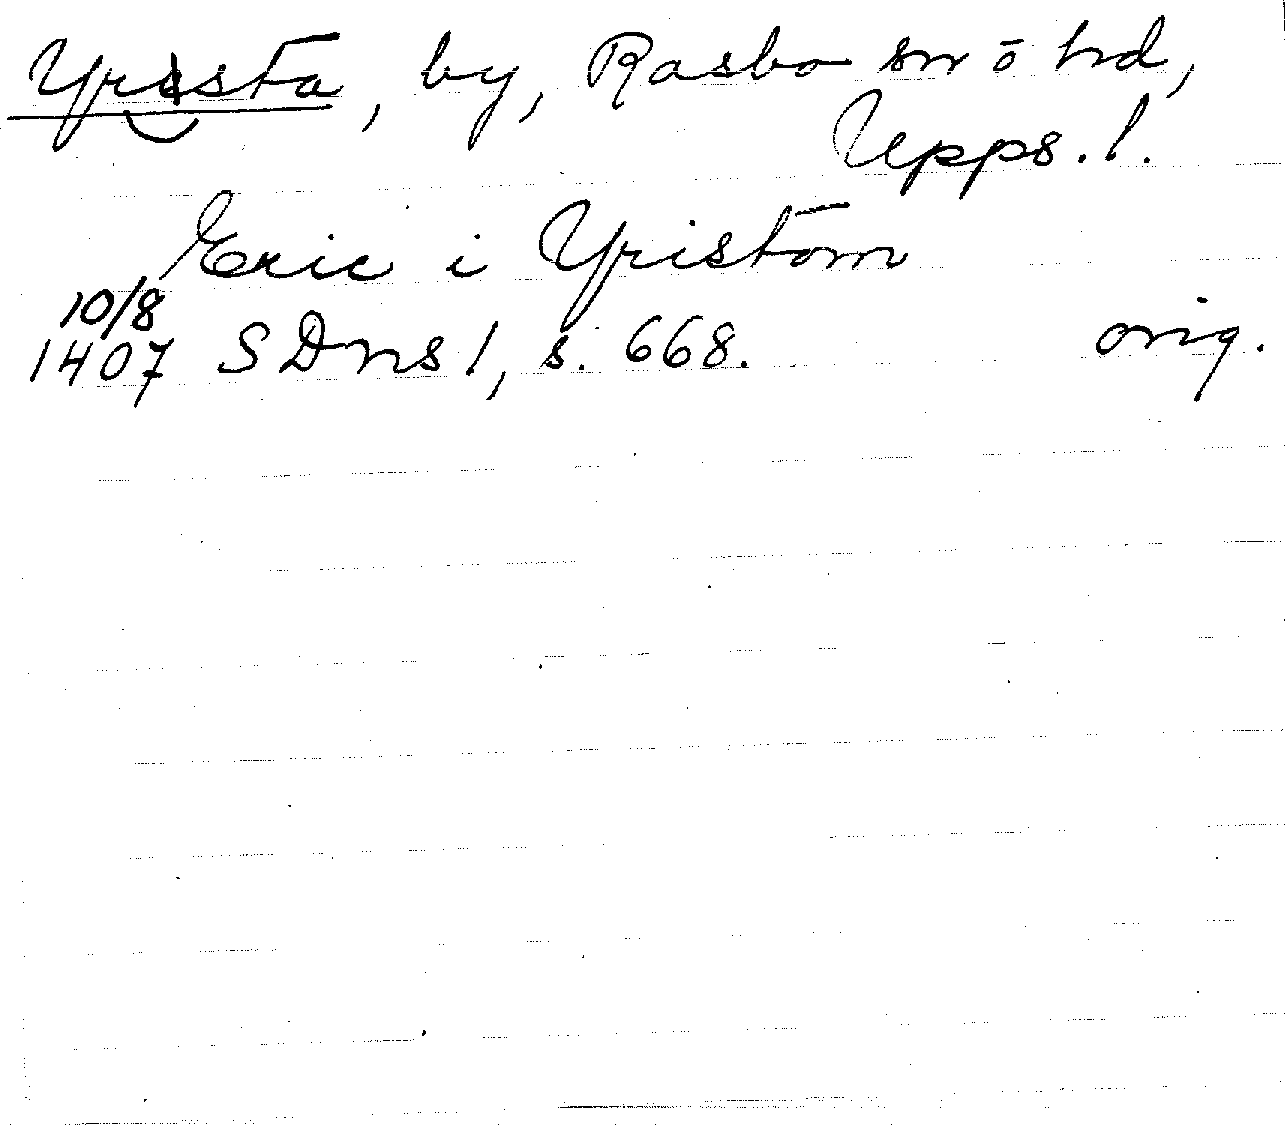 Yrsta, by, Rasbo sn ō hd,
Upps. l.
Eric i Yristom
10/8
1407 SDns 1, s. 668. orig.